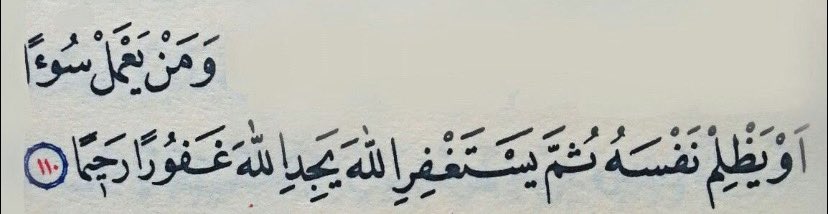 وَمَنْ يَعْمَلْ سُوءًا
اَوْ يَظْلِمْ نَفْسَهُ ثُمَّ يَسْتَغْفِرِ اللّٰهَ يَجِدِ اللّٰهَ غَفُورًا رَحِيمًا ١١٠